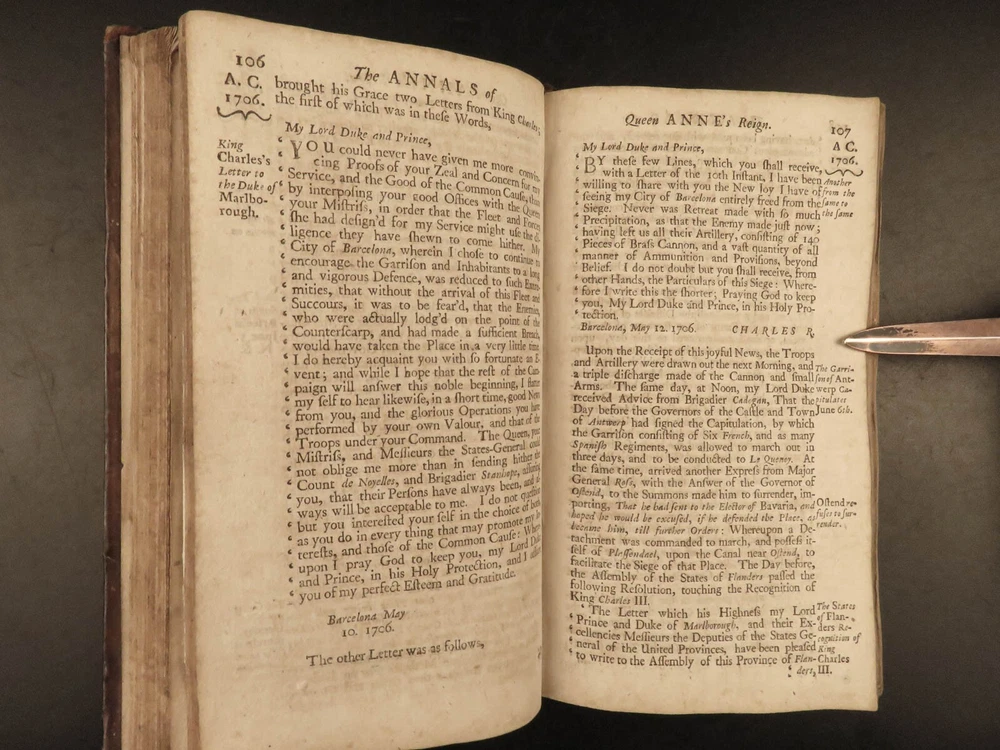 106
The ANNALS of
A. C.
1706.
brought his Grace two Letters from King Charles;
the first of which was in these Words,
King
Charles's
Letter to
the Duke of
Marlbo-
rough.
My Lord Duke and Prince,
YOU could never have given me more convin-
‘ cing Proofs of your Zeal and Concern for my
‘ Service, and the Good of the Common Cause, than
‘ by interposing your good Offices with the Queen
‘ your Mistriss, in order that the Fleet and Forces
‘ she had design'd for my Service might use the di-
‘ ligence they have shewn to come hither. My
‘ City of Barcelona, wherein I chose to continue to
‘ encourage the Garrison and Inhabitants to a long
‘ and vigorous Defence, was reduced to such Extre-
‘ mities, that without the arrival of this Fleet and
‘ Succours, it was to be fear'd, that the Enemies,
‘ who were actually lodg'd on the point of the
‘ Counterscarp, and had made a sufficient Breach,
‘ would have taken the Place in a very little time.
‘ I do hereby acquaint you with so fortunate an E-
‘ vent; and while I hope that the rest of the Cam-
‘ paign will answer this noble beginning, I flatter
‘ my self to hear likewise, in a short time, good News
‘ from you, and the glorious Operations you have
‘ performed by your own Valour, and that of the
‘ Troops under your Command. The Queen, your
‘ Mistriss, and Messieurs the States-General could
‘ not oblige me more than in sending hither the
‘ Count de Noyelles, and Brigadier Stanhope,
‘ you, that their Persons have always been, and al-
‘ ways will be acceptable to me. I do not question
‘ but you interested your self in the choice of both,
‘ as you do in every thing that may promote my In-
‘ terests, and those of the Common Cause: Where-
‘ upon I pray God to keep you, my Lord Duke
‘ and Prince, in his Holy Protection, and I assure
‘ you of my perfect Esteem and Gratitude.
Barcelona May
10. 1706.
The other Letter was as follows,
Queen ANNE's Reign.
107
A C.
1706.
My Lord Duke and Prince,
BY these few Lines, which you shall receive,
‘ with a Letter of the 10th Instant, I have been
‘ willing to share with you the New Joy I have of
‘ seeing my City of Barcelona entirely freed from the
‘ Siege. Never was Retreat made with so much
‘ Precipitation, as that the Enemy made just now;
‘ having left us all their Artillery, consisting of 140
‘ Pieces of Brass Cannon, and a vast quantity of all
‘ manner of Ammunition and Provisions, beyond
‘ Belief. I do not doubt but you shall receive, from
‘ other Hands, the Particulars of this Siege: Where-
‘ fore I write this the shorter; Praying God to keep
‘ you, My Lord Duke and Prince, in his Holy Pro-
‘ tection.
Another
from the
same to
the same
Barcelona, May 12. 1706. CHARLES R.
Upon the Receipt of this joyful News, the Troops
and Artillery were drawn out the next Morning, and
a triple discharge made of the Cannon and small
Arms. The same day, at Noon, my Lord Duke
received Advice from Brigadier Cadogan, That the
Day before the Governors of the Castle and Town
of Antwerp had signed the Capitulation, by which
the Garrison consisting of Six French, and as many
Spanish Regiments, was allowed to march out in
three days, and to be conducted to Le Quenoy. At
the same time, arrived another Express from Major
General Ross, with the Answer of the Governor of
Ostend, to the Summons made him to surrender, im-
porting, That he had sent to the Elector of Bavaria, and
hoped he would be excused, if he defended the Place, as
became him, till further Orders: Whereupon a De-
tachment was commanded to march, and possess it-
self of Plassendael, upon the Canal near Ostend, to
facilitate the Siege of that Place. The Day before,
the Assembly of the States of Flanders passed the
following Resolution, touching the Recognition of
King Charles III.
The Garri-
son of Ant-
werp Ca-
pitulates
June 6th.
Ostend re-
fuses to sur-
render.
‘ The Letter which his Highness my Lord
‘ Prince and Duke of Marlborough, and their Ex-
‘ cellencies Messieurs the Deputies of the States Ge-
‘ neral of the United Provinces, have been pleased
‘ to write to the Assembly of this Province of Flan-
‘ ders,
The States
of Flan-
ders Re-
cognition of
King
Charles
III.